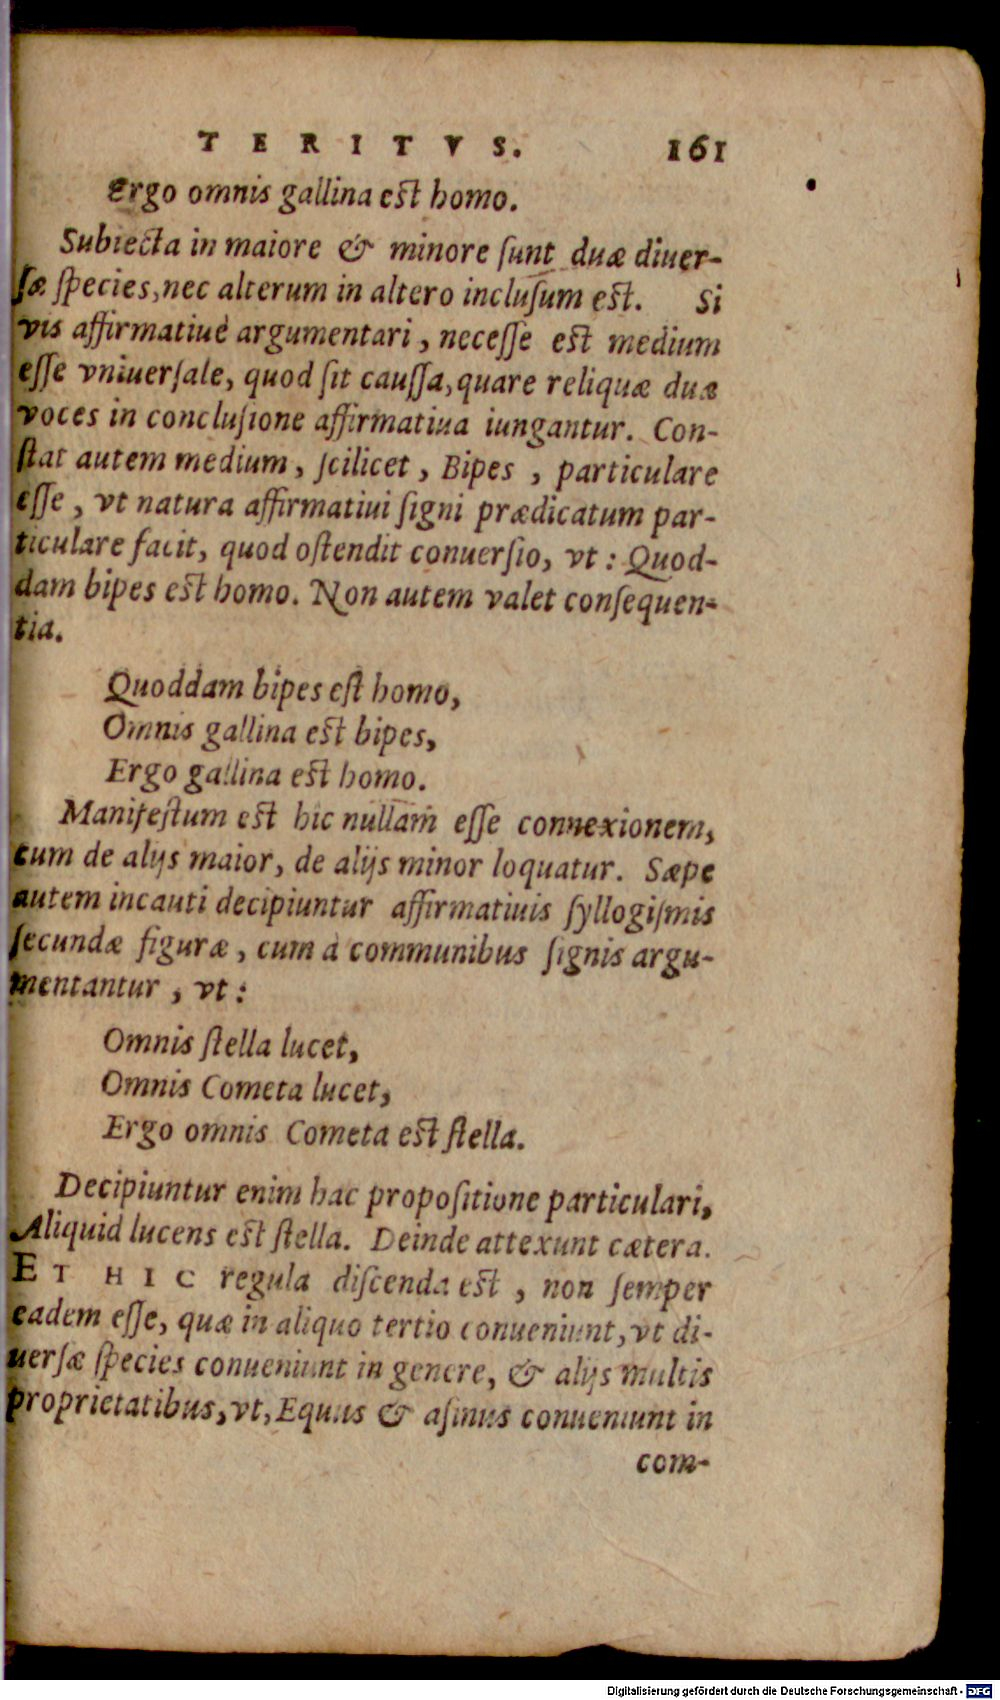 TERITVS. 161
Ergo omnis gallina est homo.
Subiecta in maiore & minore ſunt duæ diuer-
ſæ ſpecies, nec alterum in altero incluſum est. Si
vis affirmatiuè argumentari, neceſſe est medium
eſſe vniuerſale, quod ſit cauſſa, quare reliquæ duæ
voces in concluſione affirmatiua iungantur. Con-
ſtat autem medium, ſcilicet, Bipes, particulare
eſſe, vt natura affirmatiui ſigni prædicatum par-
ticulare facit, quod oſtendit conuerſio, vt: Quod-
dam bipes est homo. Non autem valet conſequen-
tia.
Quoddam bipes eſt homo,
Omnis gallina est bipes,
Ergo gallina est homo.
Manifeſtum est hic nullam eſſe connexionem,
cum de alijs maior, de alijs minor loquatur. Sæpe
autem incauti decipiuntur affirmatiuis ſyllogiſmis
ſecundæ figuræ, cum à communibus ſignis argu-
mentantur, vt:
Omnis ſtella lucet,
Omnis Cometa lucet,
Ergo omnis Cometa est ſtella.
Decipiuntur enim hac propoſitione particulari,
Aliquid lucens est ſtella. Deinde attexunt cætera.
ET HIC regula diſcenda est, non ſemper
eadem eſſe, quæ in aliquo tertio conueniunt, vt di-
uerſæ ſpecies conueniunt in genere, & alijs multis
proprietatibus, vt, Equus & aſinus conueniunt in
com-
Digitalisierung gefördert durch die Deutsche Forschungsgemeinschaft - DFG